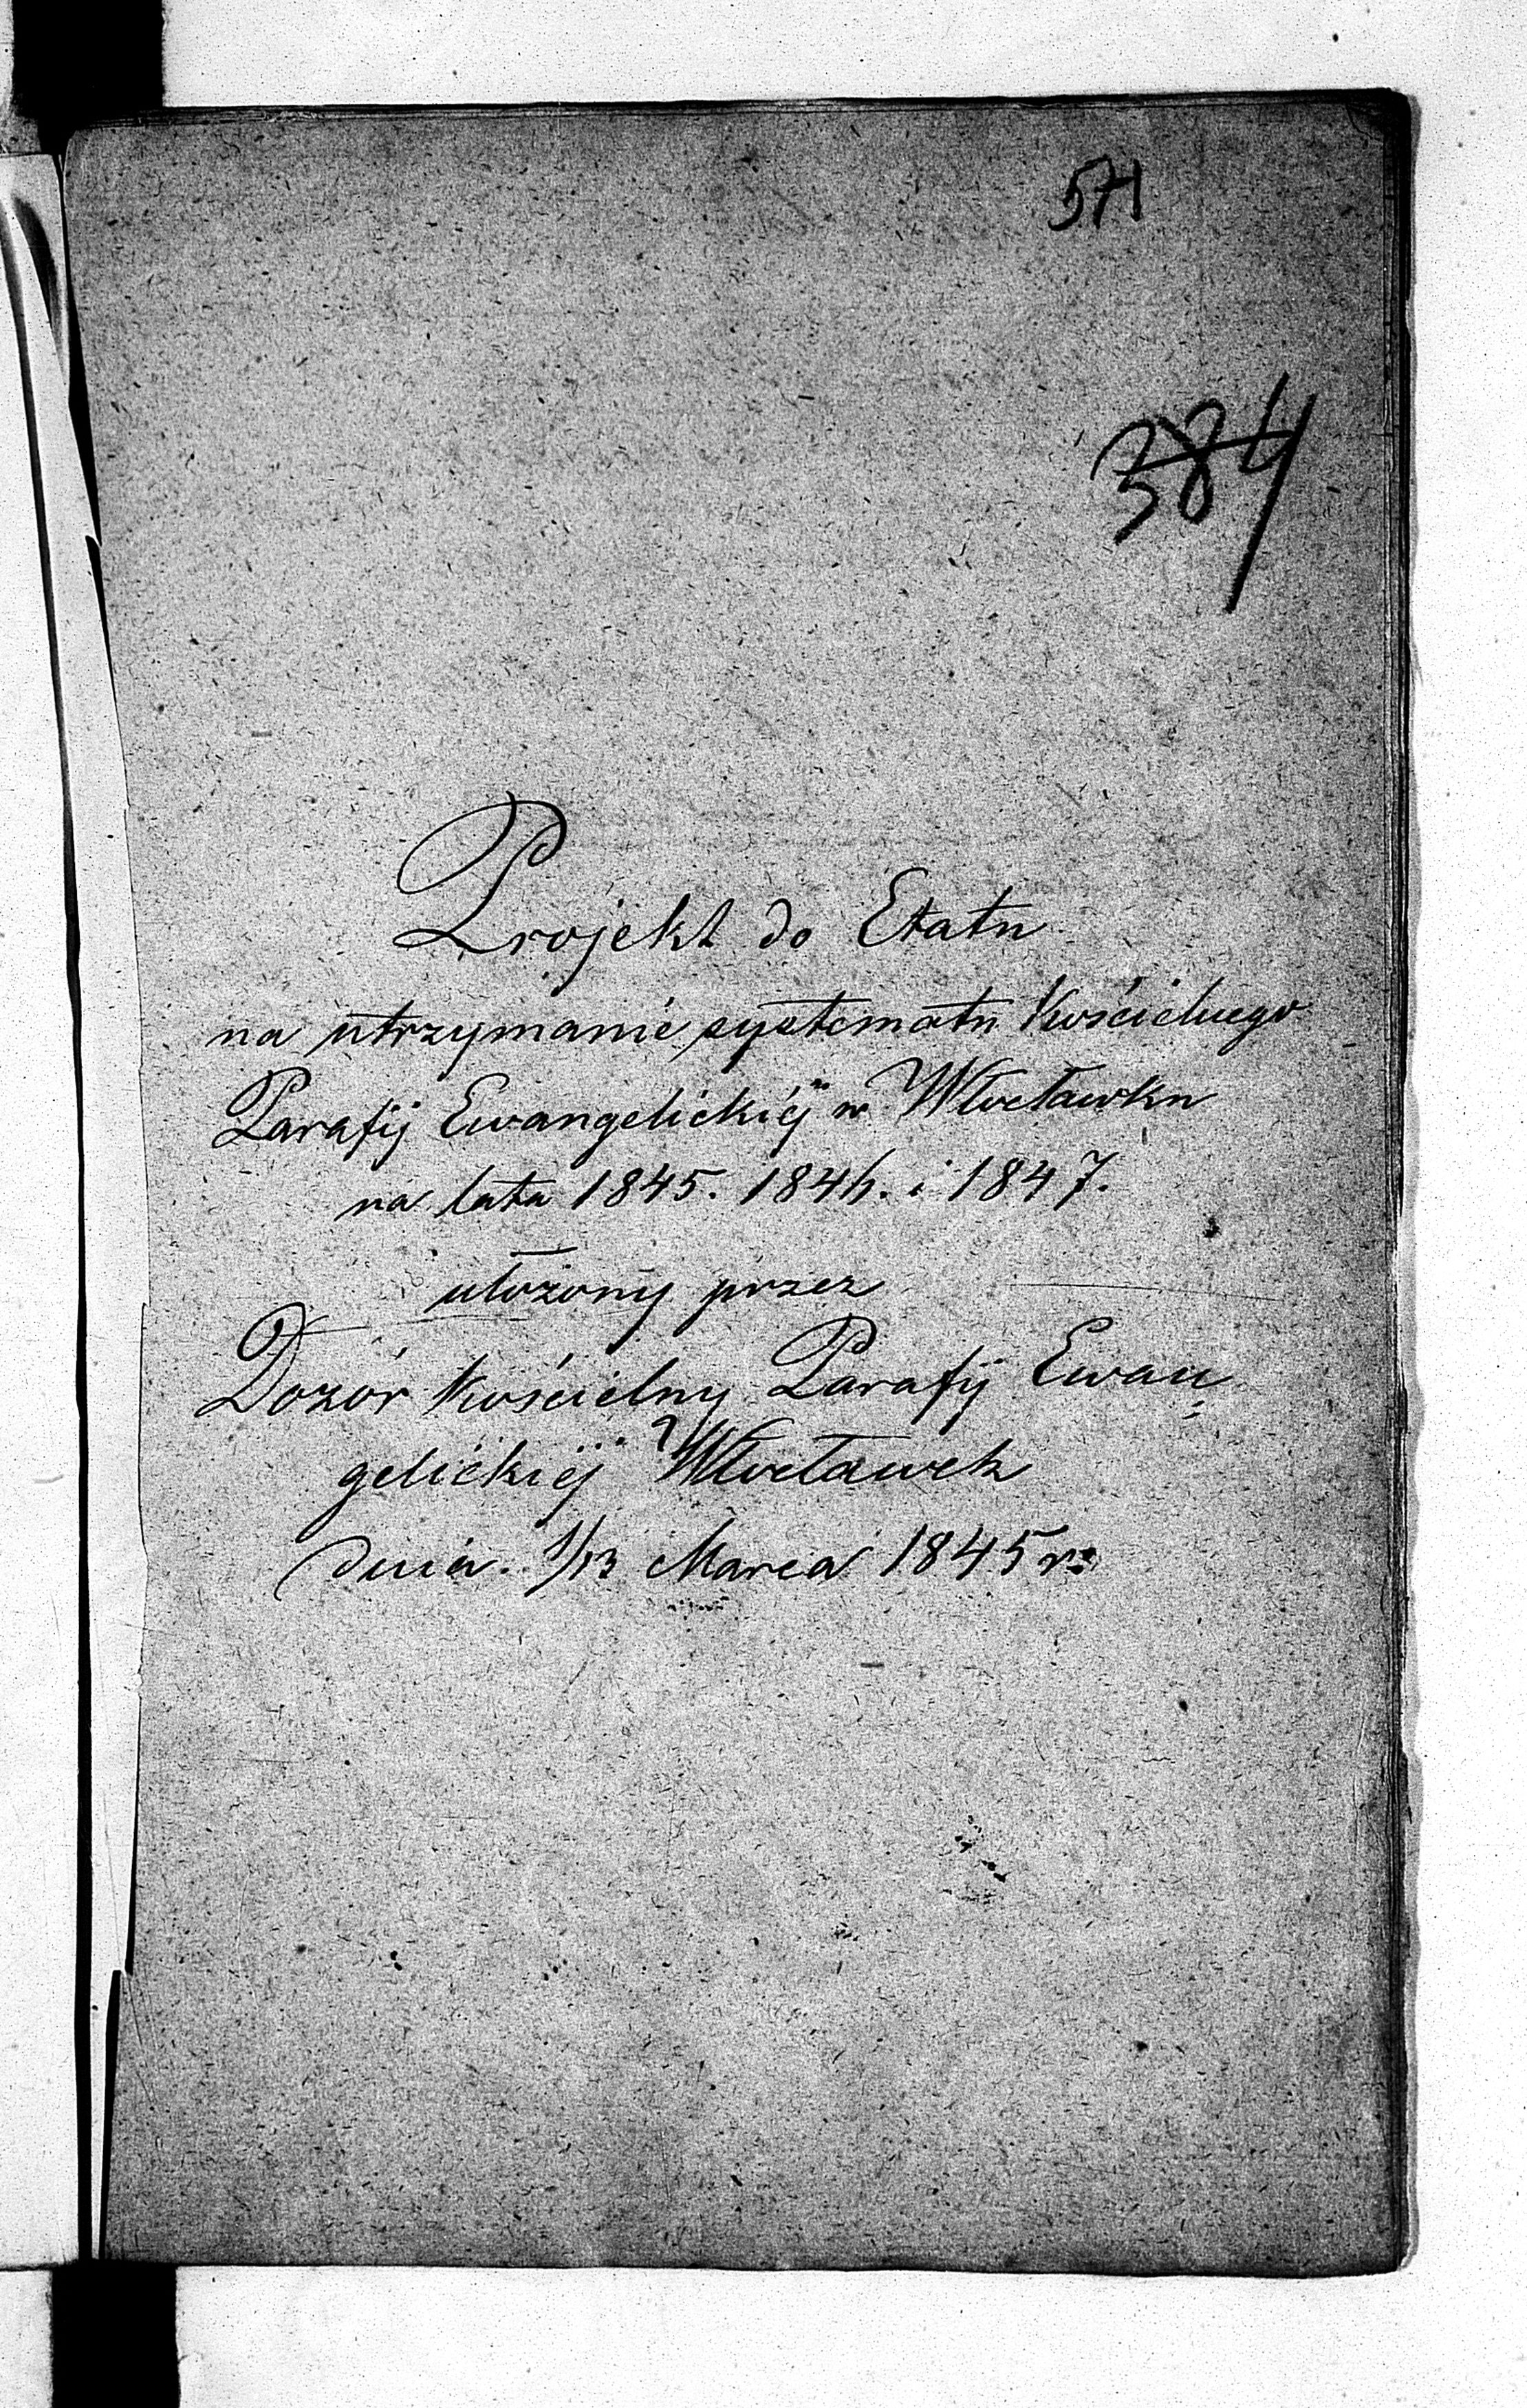 571
384
Projekt do Etatu
na utrzymanie systematu Kościelnego
Parafij Ewangelickiéj w Włocławku
na lata 1845. 1846. i 1847.
ułożony przez
Dozór Kościelny Parafij Ewan
gelickiéj Włocławek
dnia. 1/13 Marca 1845 r: